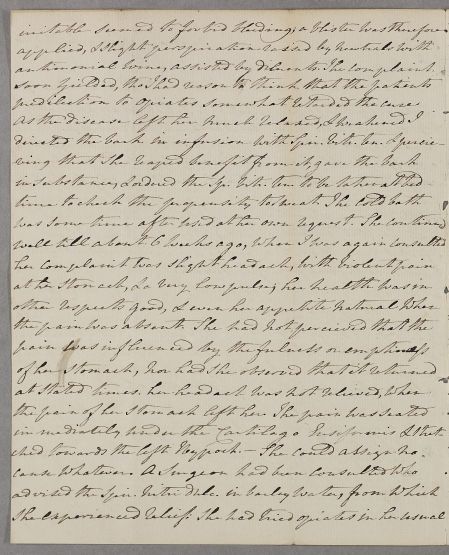 irritable seemed to forbid bleeding; a blister was therefore
applied, & slight perspiration raised by neutrals with
antimonial wine, assisted by diluents. The complaint
soon yielded, tho' I had reason to think that the patients
predilection to opiates somewhat retarded the cure.
As the disease left her much relaxed, & weakened I
directed the bark in infusion with Spir. Vit. ten. & percei-
ving that she reaped benefit from it, gave the bark
in substance, & ordered the Sp. Vit. ten. to be taken at bed-
time to check the propensity to sweat. The cold bath
was some time after used at her own request. She continued
well till about 6 weeks ago, when I was again consulted
her complaint was slight headach, with violent pain
at her Stomach, & a very low pulse; her health was in
other respects good, & even her appetite natural when
the pain was absent. She had not perceived that the
pain was influenced by the fulness or emptiness
of her Stomach, nor had she observed that it returned
at stated times. her headach was not relieved, when
the pain of her stomach left her. The pain was seated
immediately under the Cartilago Ensiformis & stret-
ched towards the left Hypoch. — She could assign no
cause whatever. A Surgeon had been consulted who
advised the Spir. Nitri dulc. in barley water, from which
she experienced relief. She had tried opiates in her usual